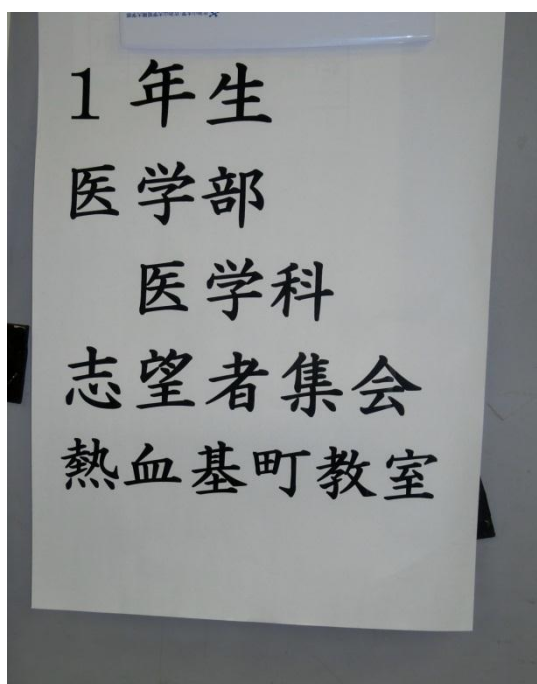 1年生
医学部
医学科
志望者集会
熱血基町教室